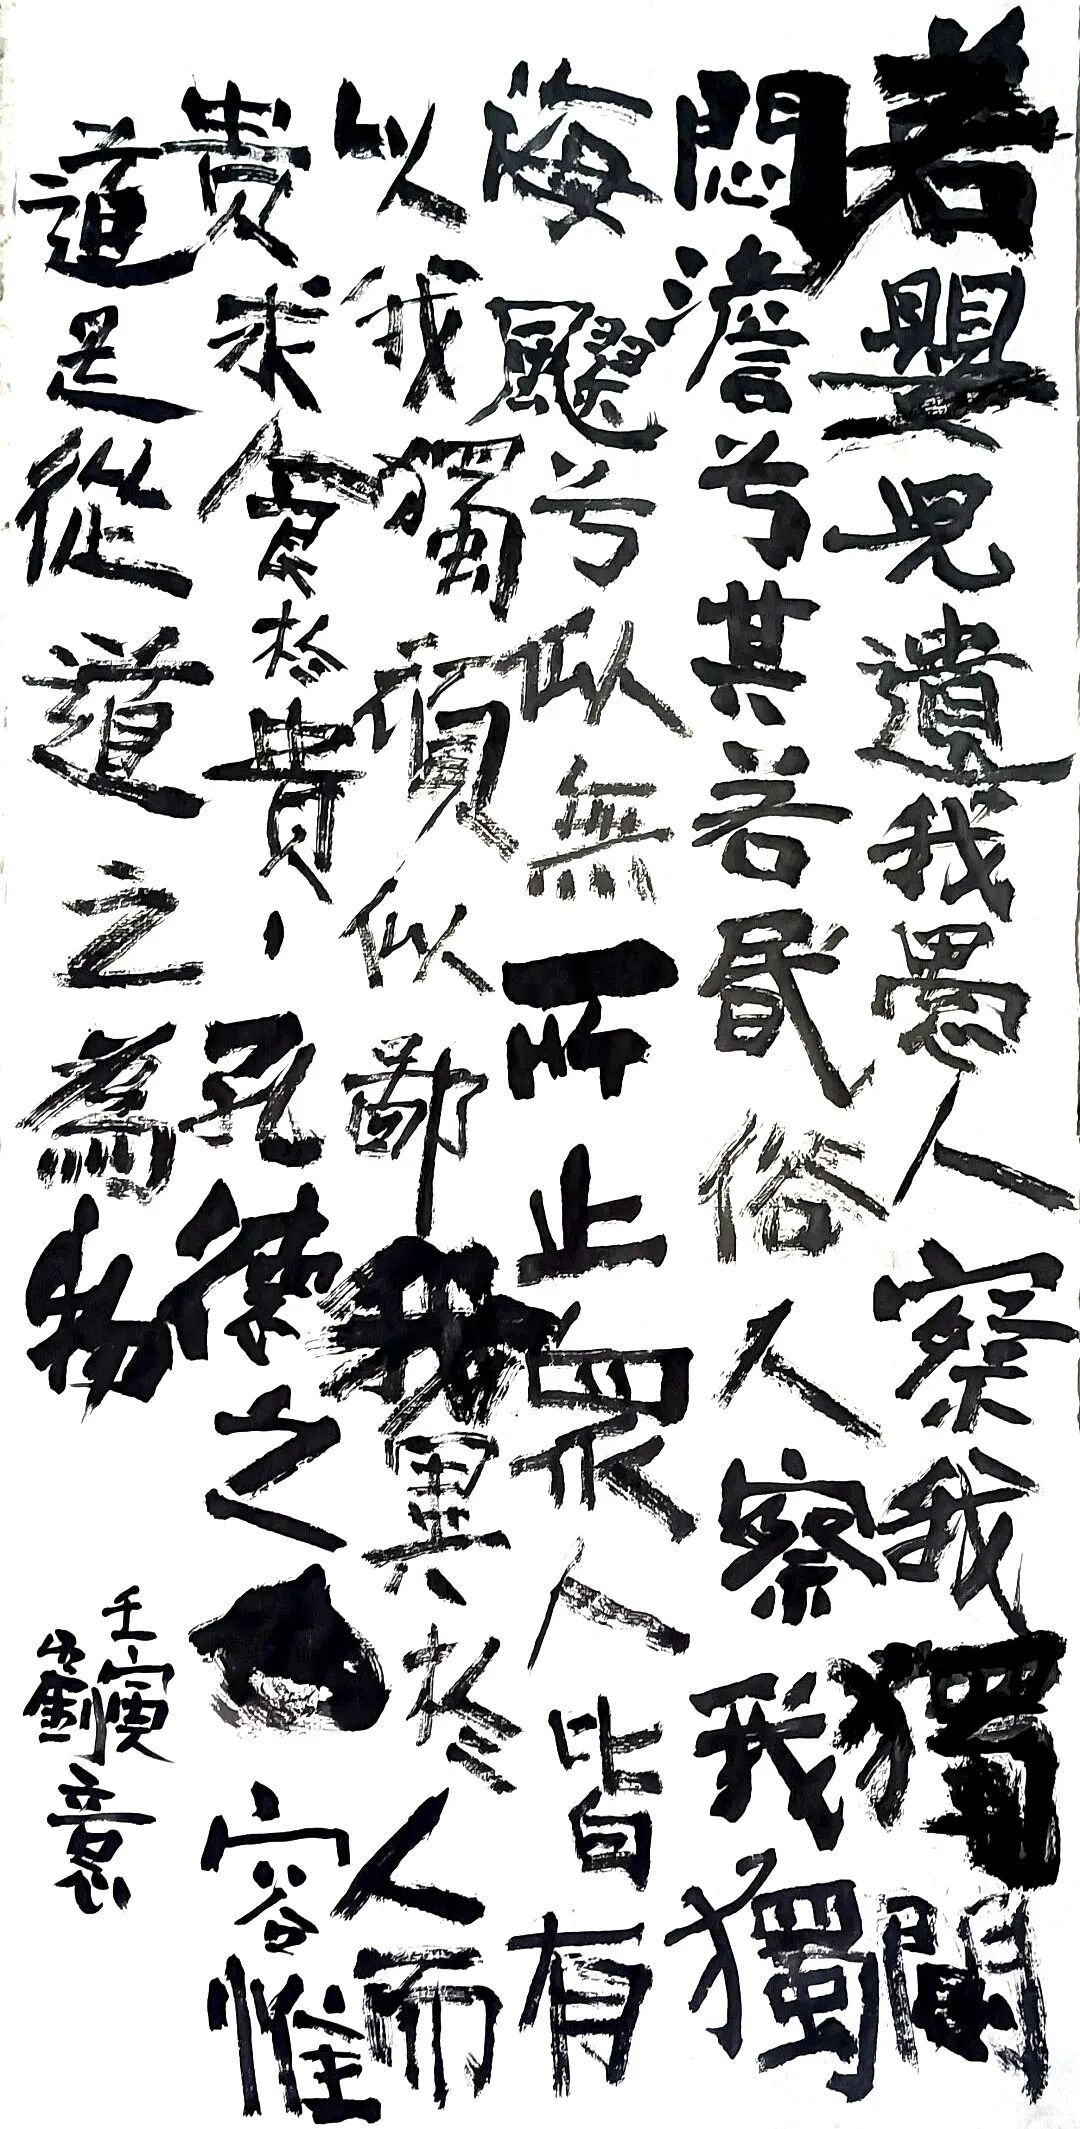 若嬰兒遺我愚人察我獨
悶澹兮其若昬俗人察我獨
海飂兮似無所止眾人皆有
以我獨頑似鄙我異於人而
貴求食於貴、孔德之容惟
道是從道之為物
壬寅
劉意